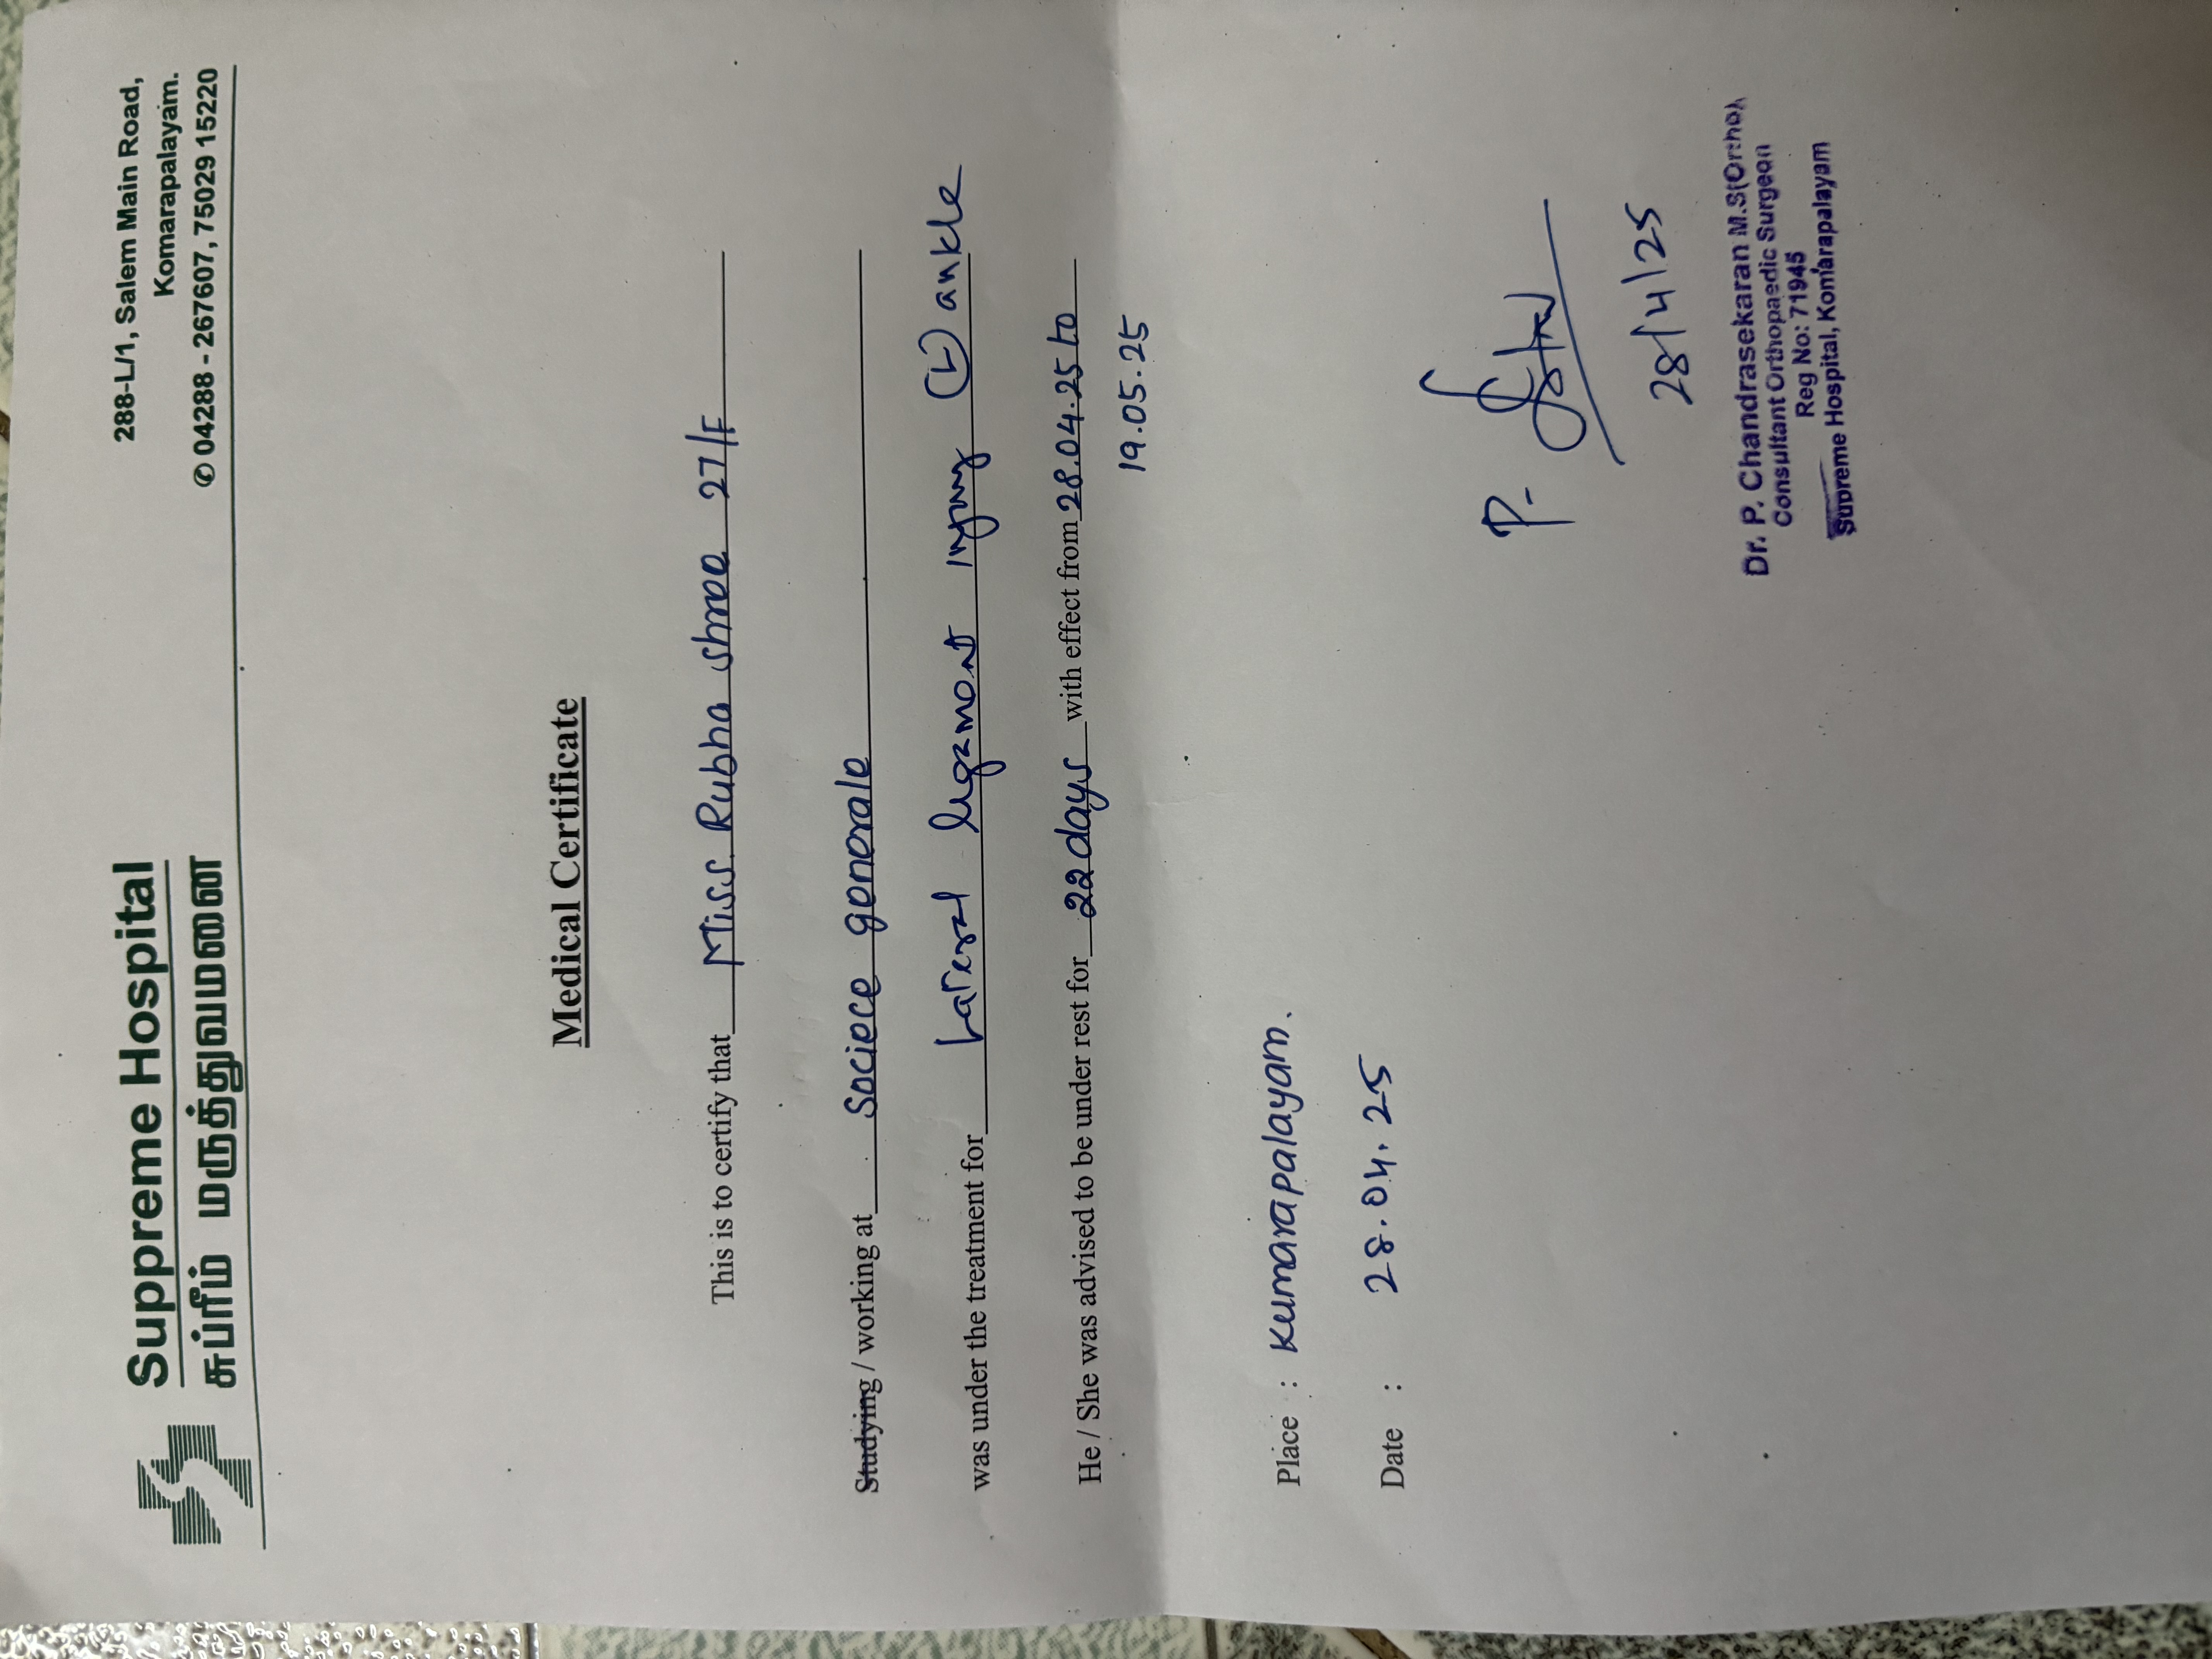 Suppreme Hospital
சுப்ரீம் மருத்துவமனை
288-L/1, Salem Main Road,
Komarapalayam.
✆ 04288 - 267607, 75029 15220
Medical Certificate
This is to certify that Miss. Rubha shree 27/F
Studying / working at Sociece generale
was under the treatment for Lateral ligament injury (L) ankle
He / She was advised to be under rest for 22 days with effect from 28.04.25 to
19.05.25
Place : Kumarapalayam.
Date : 28.04.25
P.
28/4/25
Dr. P. Chandrasekaran M.S(Ortho),
Consultant Orthopaedic Surgeon
Reg No: 71945
Supreme Hospital, Komarapalayam